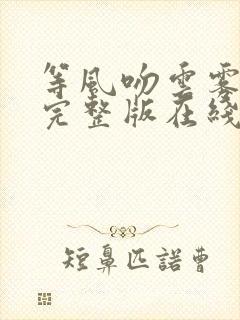 等风吻云雾
完整版在线
短鼻匹諾曹